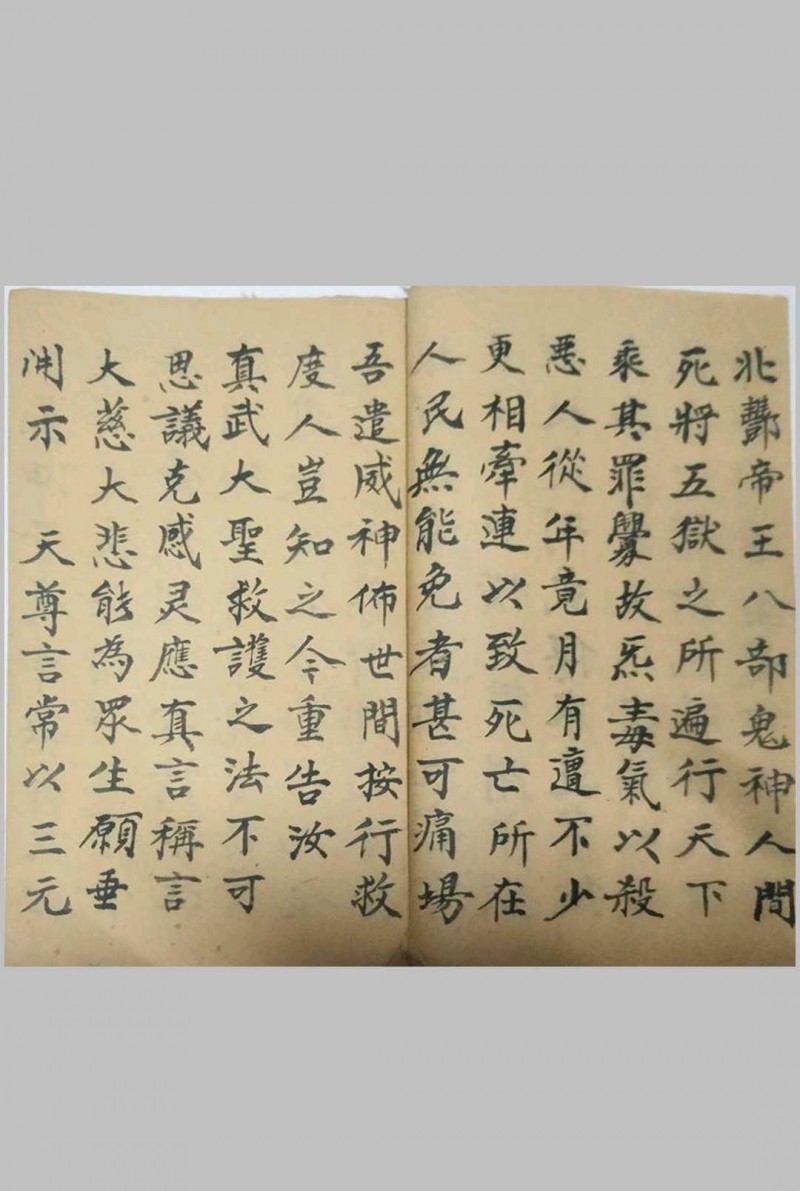 北酆帝王八部鬼神人間
死將五獄之所遍行天下
乘其罪釁故炁毒氣以殺
惡人從年竟月有遭不少
更相牽連以致死亡所在
人民無能免者甚可痛場
吾遣威神佈世間按行救
度人豈知之今重告汝
真武大聖救護之法不可
思議克感灵應真言稱言
大慈大悲能為眾生願垂
開示 天尊言常以三元